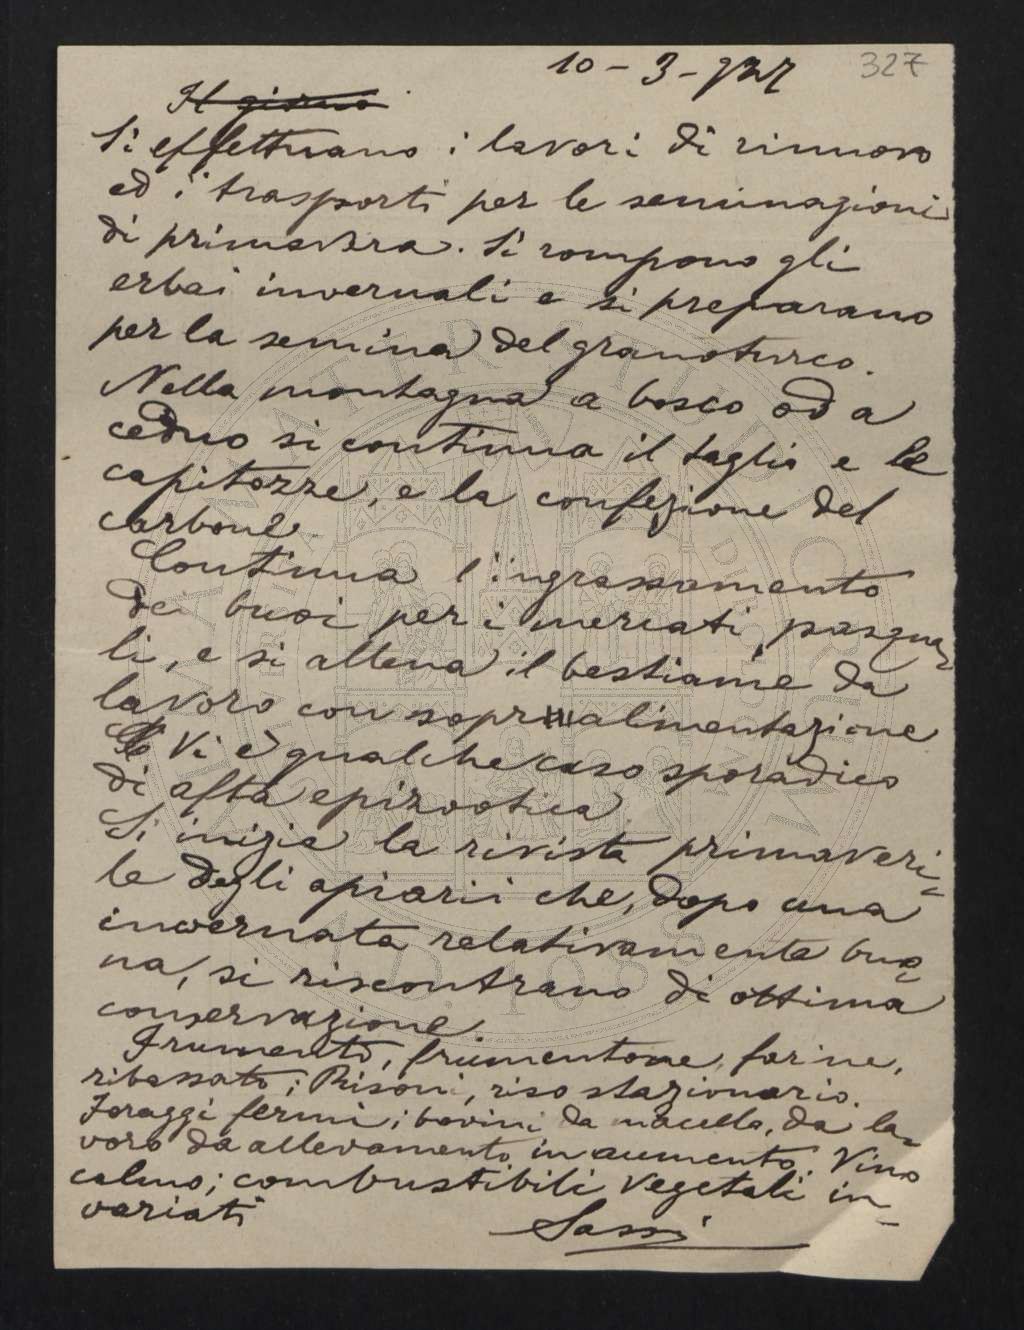 10-3-927
327
Il giorno
Si effettuano i lavori di rinnovo
ed i trasporti per le seminagioni
di primavera. Si rompono gli
erbai invernali e si preparano
per la semina del granoturco.
Nella montagna a bosco od a
ceduo si continua il taglio e le
capitozze, e la confezione del
carbone.
Continua l'ingrassamento
dei buoi per i mercati pasqua
li, e si allena il bestiame da
lavoro con sopralimentazione
Vi è qualche caso sporadico
di afta epizootica
Si inizia la rivista primaveri-
le degli apiarii che, dopo una
invernata relativamente buo-
na, si riscontrano di ottima
conservazione.
Frumento, frumentone, farine,
ribassato; Risoni, riso stazionario.
Foraggi fermi; bovini da macello, da la-
voro da allevamento in aumento. Vino
calmo; combustibili vegetali in-
variati
Sassi